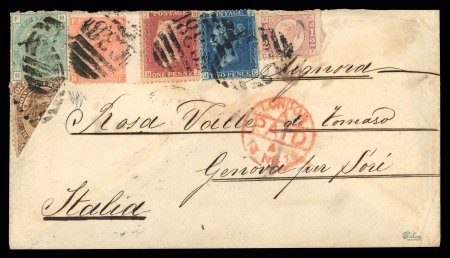 ONE PENNY
TWO PENCE
Signora
Rosa Valle di Tomaso
LONDON
PAID
Genova per Sori
Italia